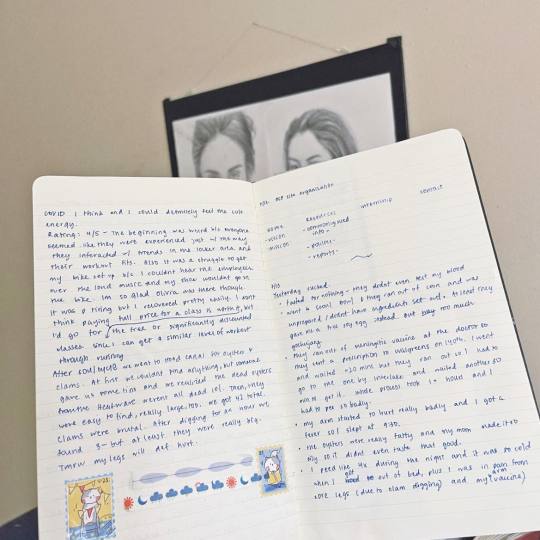 COVID I think and I could definitely feel the cult
energy.
Rating: 4/5 - The beginning was weird b/c everyone
seemed like they were experienced just w/ the way
they interacted w/ friends in the lower area and
their workout fits. Also it was a struggle to get
my bike set up b/c I couldn't hear the employees
over the loud music and my shoe wouldn't go in
the bike. Im so glad Olivia was there though.
It was a rising but I recovered pretty easily. I don't
think paying full price for a class is worth it, but
I'd go for the free or significantly discounted
classes since I can get a similar level of workout
through running
After soulcycle we went to hood canal for oysters &
clams. At first we couldn't find anything, but someone
gave us some tips and we realized the dead oysters
from the heatwave weren't all dead lol. Then, they
were easy to find, really large, too. We got 42 total.
Clams were brutal. After digging for an hour we
found 3 - but at least they were really big.
Tmrw my legs will def hurt.
life organization
home
resources
internship
contact
- vision
- mission
info
- policies
- reports
Yesterday sucked.
fasted for nothing - they didnt even test my blood
went to & they ran out of corn and was
unprepared / didn't have ingredients set out. At least they
gave me a free soy egg instead. but way too much
gochujang.
they ran out of meningitis vaccine at the doctor so
they sent a prescription to walgreens on 140th. I went
and waited ~20 mins but they ran out so I had to
go to the one by interlake and waited another 50
min to get it. Whole process took 1+ hours and I
had to pee so badly.
my arm started to hurt really badly and I got a
fever so I slept at 9:30.
the oysters were really fatty and my mom made it so
oily. so it didnt even taste that good.
I peed like 4x during the night and it was so cold
when I got out of bed, plus I was in pain from
sore legs (due to clam digging) and my arm (vaccine)